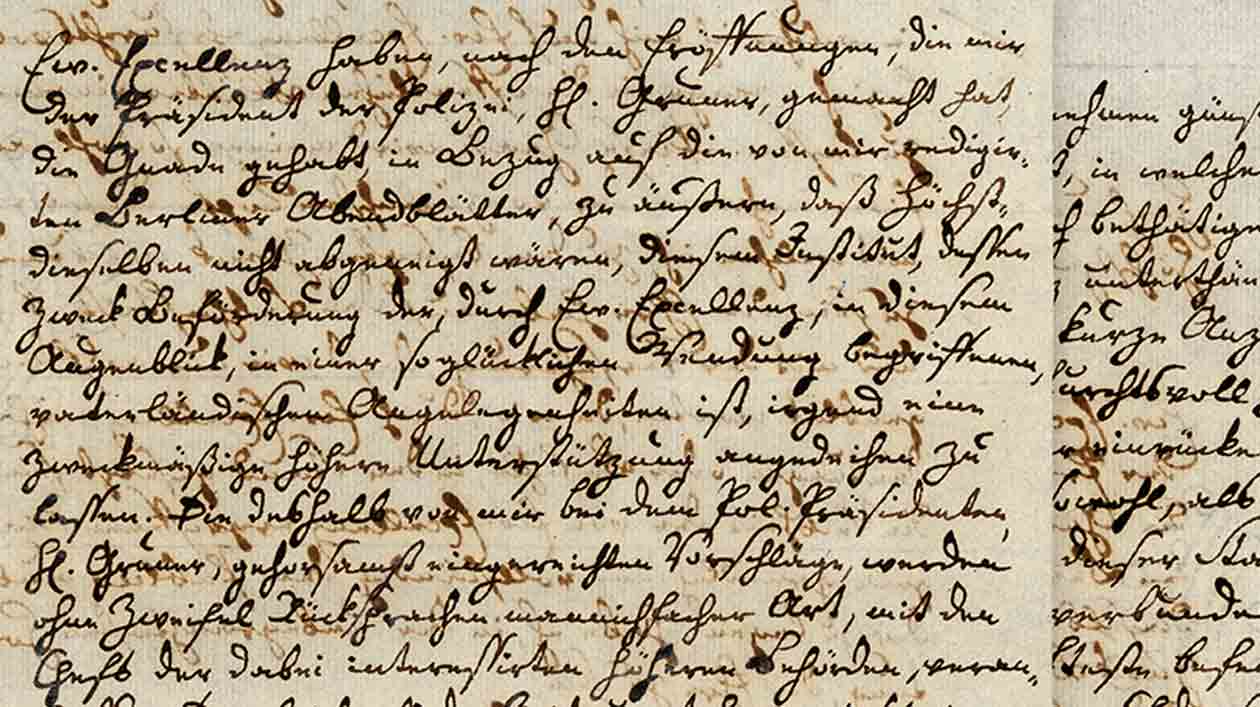 Ew. Excellenz haben, nach den Eröffnungen, die mir
der Präsident der Polizei, H. Gruner, gemacht hat,
die Gnade gehabt, in Bezug auf die von mir redigir-
ten Berliner Abendblätter, zu äußern, daß Höchst-
dieselben nicht abgeneigt wären, diesem Institut, dessen
Zweck Beförderung der, durch Ew. Excellenz, in diesem
Augenblick, in einer so glücklichen Wendung begriffenen,
vaterländischen Angelegenheiten ist, irgend eine
zweckmäßige höhere Unterstützung angedeihen zu
lassen. Die deshalb von mir bei dem Pol. Präsidenten,
H. Gruner, gehorsamst eingereichten Vorschläge, werden
ohne Zweifel Rücksprachen mannichfacher Art, mit den
Chefs der dabei interessirten höheren Behörden, veran-
nehmen
in welche
bethätige
kurze
einrücke
sowohl, als
dieser
verbunde